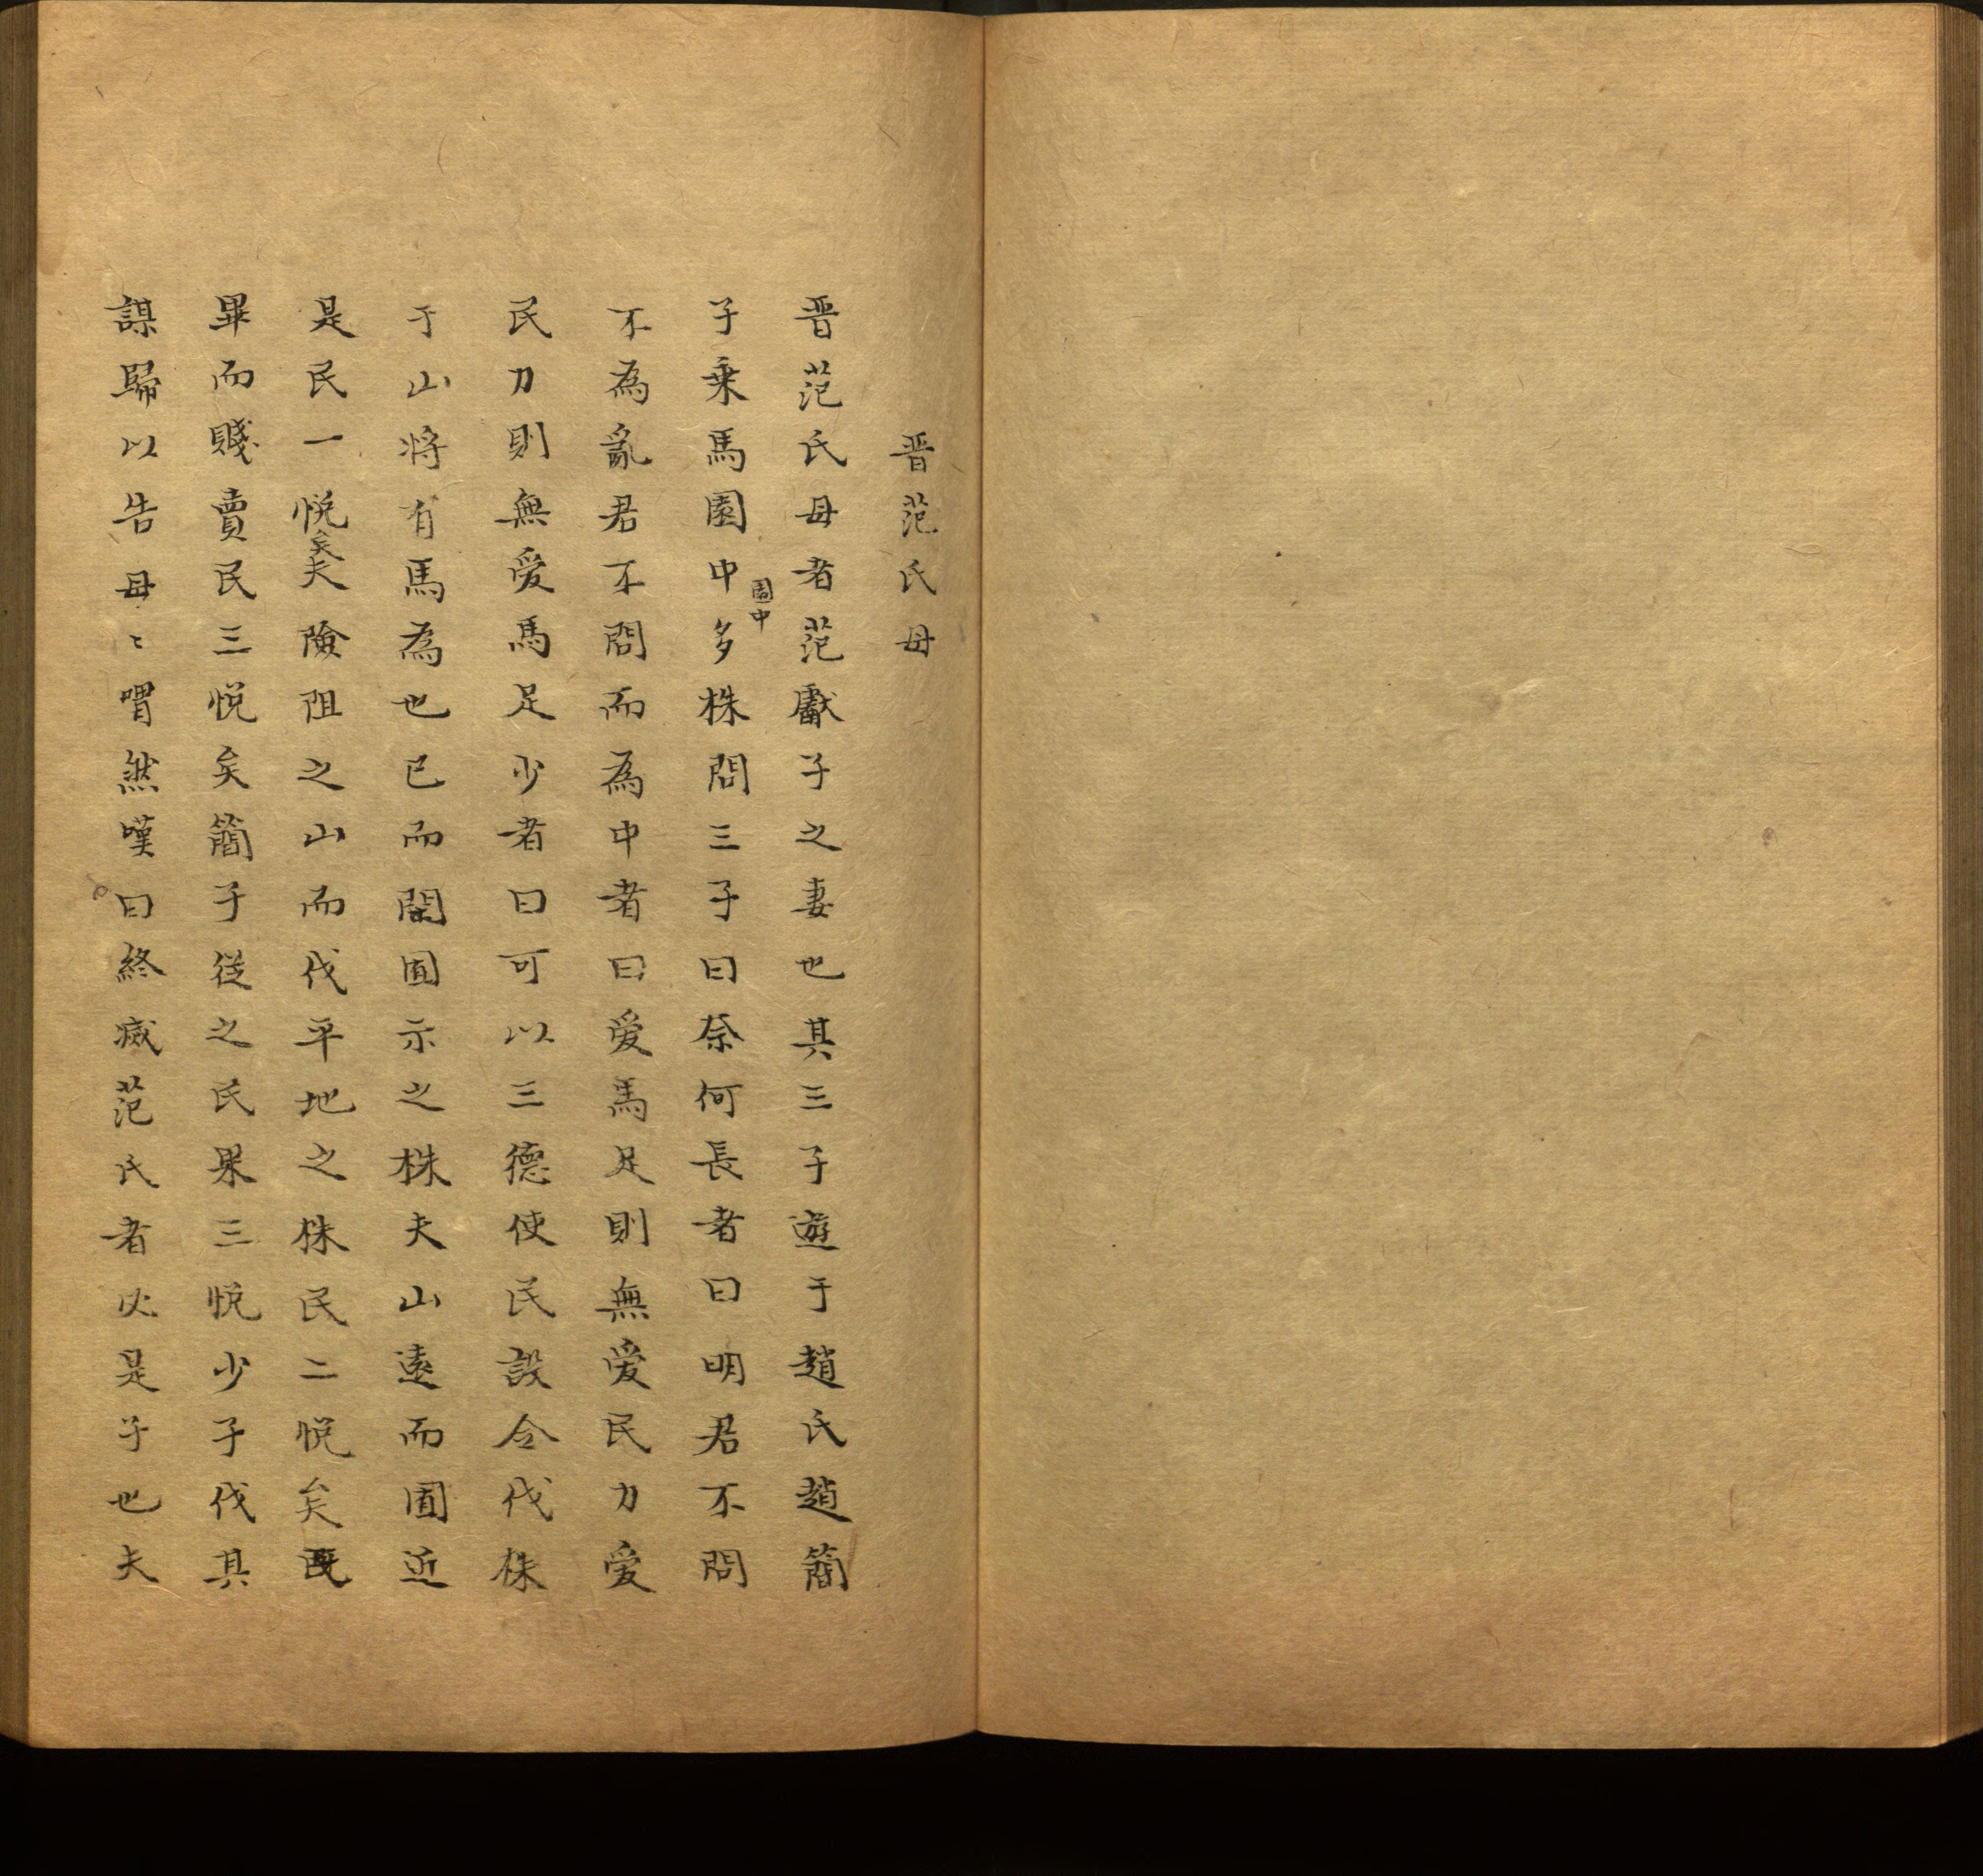 晋范氏母
晋范氏母者范獻子之妻也其三子遊于趙氏趙簡
子乗馬園中園中多株問三子曰奈何長者曰明君不問
不為亂君不問而為中者曰愛馬足則無愛民力愛
民力則無愛馬足少者曰可以三德使民設令伐株
于山将有馬為也已而開囿示之株夫山遠而囿近
是民一悦矣夫險阻之山而伐平地之株民二悦矣既
畢而賤賣民三悦矣簡子從之民果三悦少子伐其
謀歸以告母〻喟然嘆曰終滅范氏者必是子也夫